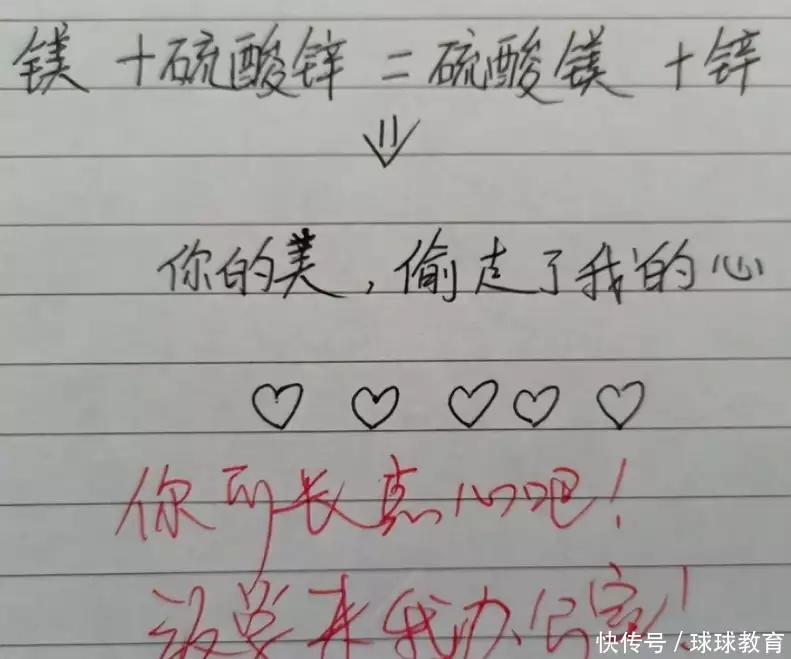 镁 + 硫酸锌 = 硫酸镁 + 锌
你的美，偷走了我的心
你可长点心吧！
放学来我办公室！
快传号 / 球球教育